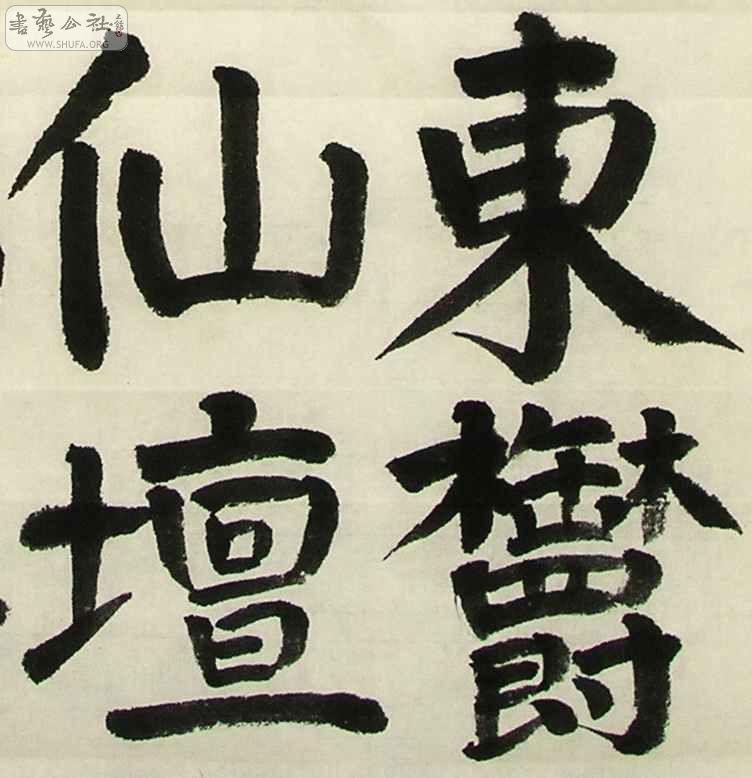 書藝公社
WWW.SHUFA.ORG
東欝
仙壇